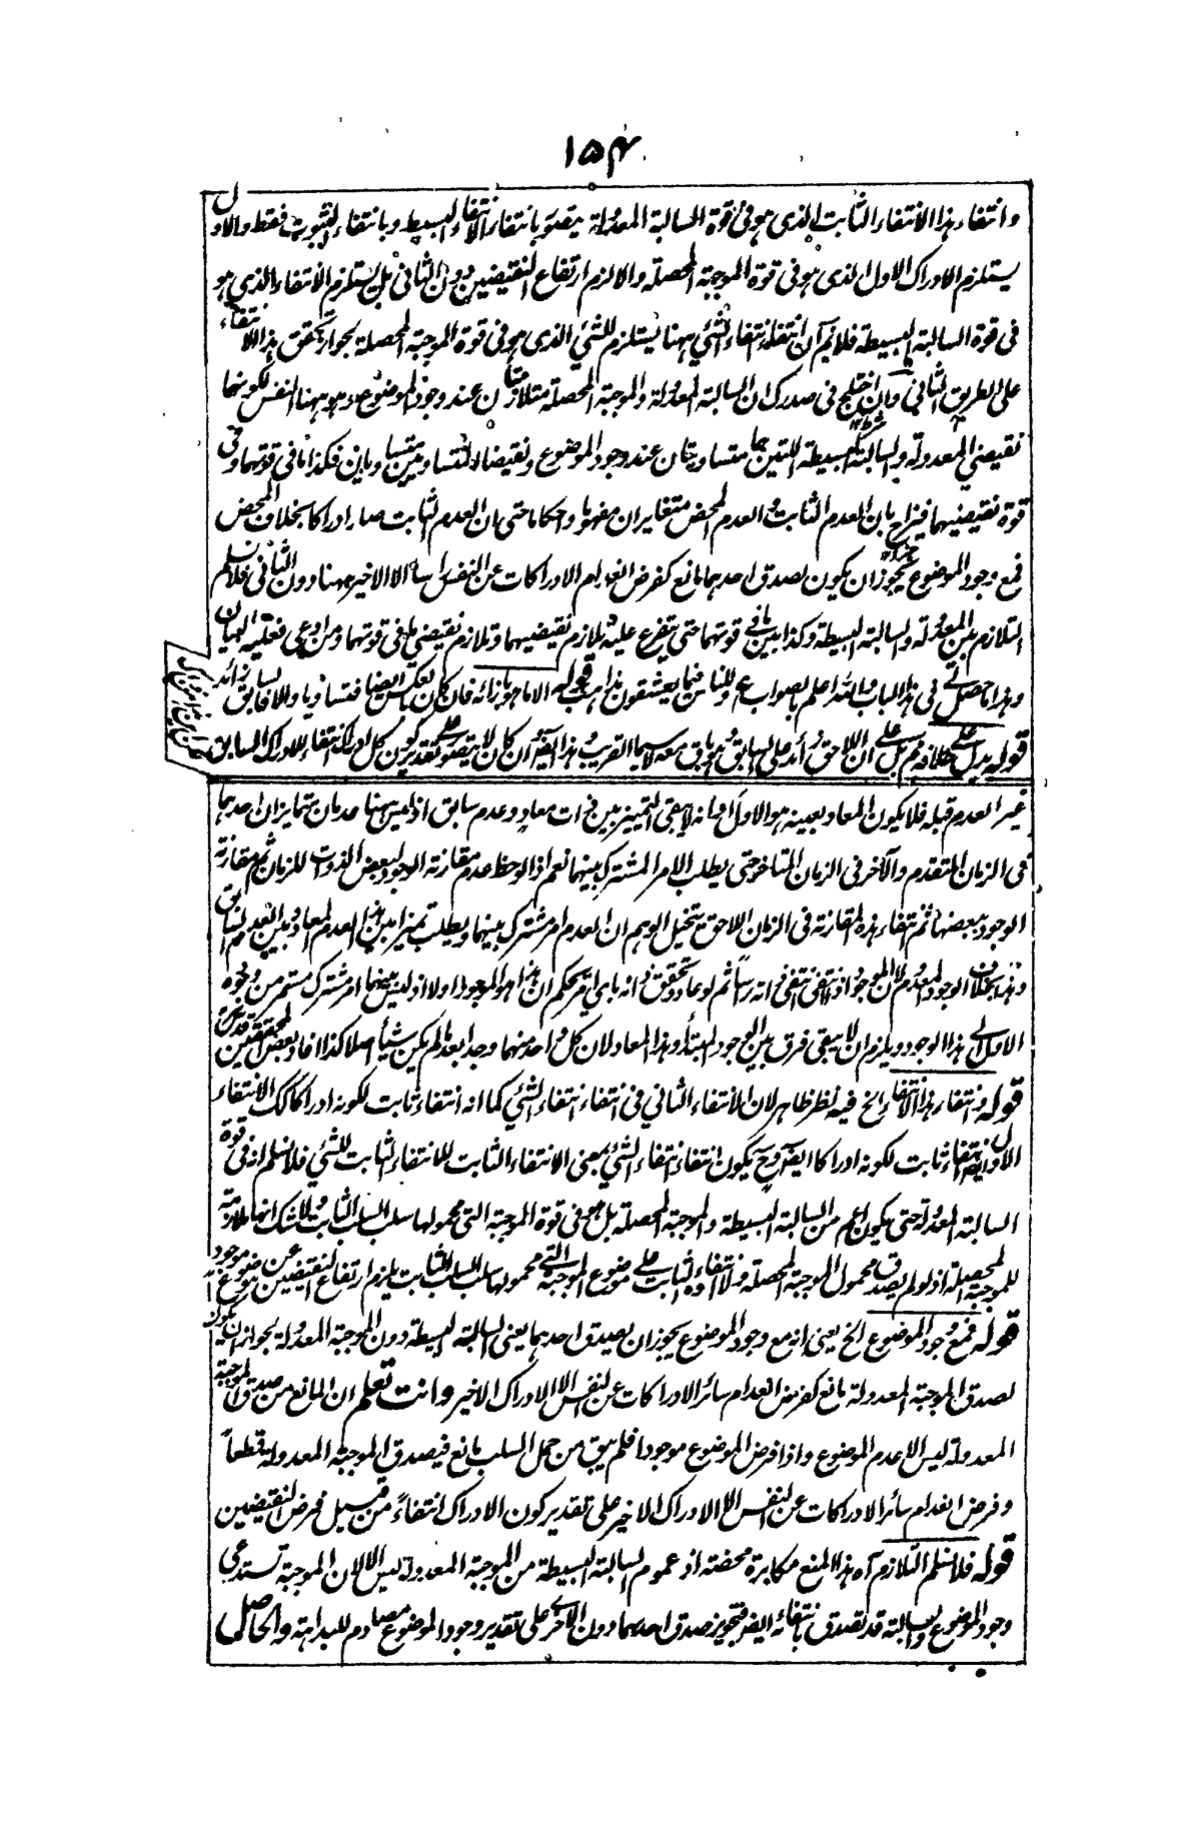 ١٥٤
وانتفاء هذا الانتفاء الثابت الذى هو فى قوة السالبة المعدولة يتصور بانتفاء الانتفاء البسيط وبانتفاء الثبوت فقط والاول
يستلزم الادراك الاول الذى هو فى قوة الموجبة المحصلة والا لزم ارتفاع النقيضين دون الثانى بل يستلزم الانتفاء الذى هو
فى قوة السالبة البسيطة فلا نم ان انتفاء انتفاء الشئ ههنا يستلزم للشئ الذى هو فى قوة الموجبة المحصلة لجواز تحقق هذا الانتفاء
على الطريق الثانى فان اختلج فى صدرك ان السالبة المعدولة والموجبة المحصلة متلازمتان عند وجود الموضوع وهو ههنا النفس لكونهما
نقيضى المعدولة والسالبة البسيطة اللتين هما متساويتان عند وجود الموضوع ونقيضا المتساويين متساويان فكذا ما فى قوتهما وفى
قوة نقيضيهما فيزاح بان العدم الثابت والعدم المحض متغايران مفهوما واحكاما حتى ان العدم الثابت صار ادراكا بخلاف المحض
فمع وجود الموضوع يجوز ان يكون لصدق احدهما مانع كفرض انعدام الادراكات عن النفس الا الاخير ههنا دون الثانى فلا نسلم
التلازم بين المعدولة والسالبة البسيطة وكذا بين ما فى قوتهما حتى يتفرع عليه تلازم نقيضيهما وتلازم نقيضى ما فى قوتهما ومن ادعى فعليه البيان
وهذا ما حصل لى فى هذا الباب والله اعلم بالصواب ع وللناس فيما يعشقون مذاهب قوله الا ما هو بازائه فان كان بعكس ايضا فمتساويا والا فالسابق زائد
قوله يدل على خلافه نم بل على ان اللاحق زائد على السابق لا سيما القريب هذا ايضا ان كان لا يتصور على تقدير كون كل ادراك انتفاء للادراك السابق
غير العدم قبله فلا يكون المعاد بعينه هو الاول او انه لا يبقى التميز بين ذات معاد وعدم سابق اذ ليس ههنا عدمان يتمايزان احدهما
فى الزمان المتقدم والآخر فى الزمان المتاخر حتى يطلب الامر المشترك بينهما نعم اذا لوحظ عدم مقارنة الوجود لبعض الذوات للزمان ثم مقارنة
الوجود ببعضها ثم انتفاء هذه المقارنة فى الزمان اللاحق يتخيل الوهم ان العدم امر مشترك بينهما ويطلب تميزا بين هذا العدم المعاد وبين العدم السابق
وهذا بخلاف الوجود المعدوم لان الموجود اذا انتفى انتفى ذاته راسا ثم لو عاد وتحقق ذاته باى امر يحكم ان هذا هو الموجود اولا اذ ليس بينهما امر مشترك مستمر من وجوده
الاول الى هذا الوجود ويلزم ان لا يبقى فرق بين الوجود المبتدأ وهذا المعاد لان كل واحد منهما وجدا بعد ما لم يكن شيئا اصلا كذا افاد بعض المحققين قدس سره
قوله وانتفاء هذا الانتفاء الخ فيه نظر ظاهر لان الانتفاء الثانى فى انتفاء انتفاء الشئ كما انه انتفاء ثابت لكونه ادراكا كك الانتفاء
الاول ايضا انتفاء ثابت لكونه ادراكا ايضا وح يكون انتفاء انتفاء الشئ بمعنى الانتفاء الثابت للانتفاء الثابت للشئ فلا نسلم انه فى قوة
السالبة المعدولة حتى يكون اعم من السالبة البسيطة والموجبة المحصلة بل هو فى قوة الموجبة التى محمولها سلب السلب الثابت ولا شك انها ملازمة
للموجبة المحصلة اذ لو لم يصدق محمول الموجبة المحصلة ولا انتفاءه الثابت على موضوع الموجبة التى محمولها سلب السلب الثابت يلزم ارتفاع النقيضين عن موضوع موجود
قوله فمع وجود الموضوع الخ يعنى انه مع وجود الموضوع يجوز ان يصدق احدهما يعنى السالبة البسيطة دون الموجبة المعدولة لجواز ان يكون
لصدق الموجبة المعدولة مانع كفرض انعدام سائر الادراكات عن النفس الا الادراك الاخير وانت تعلم ان المانع من صدق الموجبة
المعدولة ليس الا عدم الموضوع واذا فرض الموضوع موجودا فلم يبق من حمل السلب مانع فيصدق الموجبة المعدولة قطعاً
وفرض انعدام سائر الادراكات عن النفس الا الادراك الاخير على تقدير كون الادراك انتفاءً من قبيل فرض النقيضين
قوله فلا نسلم التلازم آه هذا المنع مكابرة محضة اذ عموم السالبة البسيطة من الموجبة المعدولة ليس الا لان الموجبة تستدعى
وجود الموضوع والسالبة قد تصدق بانتفائه ايضا فتجويز صدق احدهما دون الآخر على تقدير وجود الموضوع مصادم للبداهة والحاصل